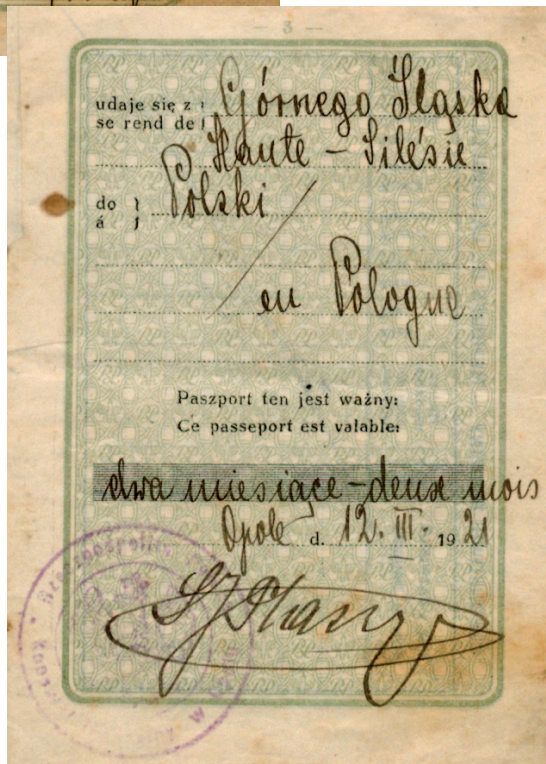 — 3 —
udaje się z } Górnego Śląska
se rend de }
Haute - Silésie
do } Polski
á }
en Pologne
Paszport ten jest ważny:
Ce passeport est valable:
dwa miesiące - deux mois
Opole d. 12. III. 1921
Rzeczpospolita